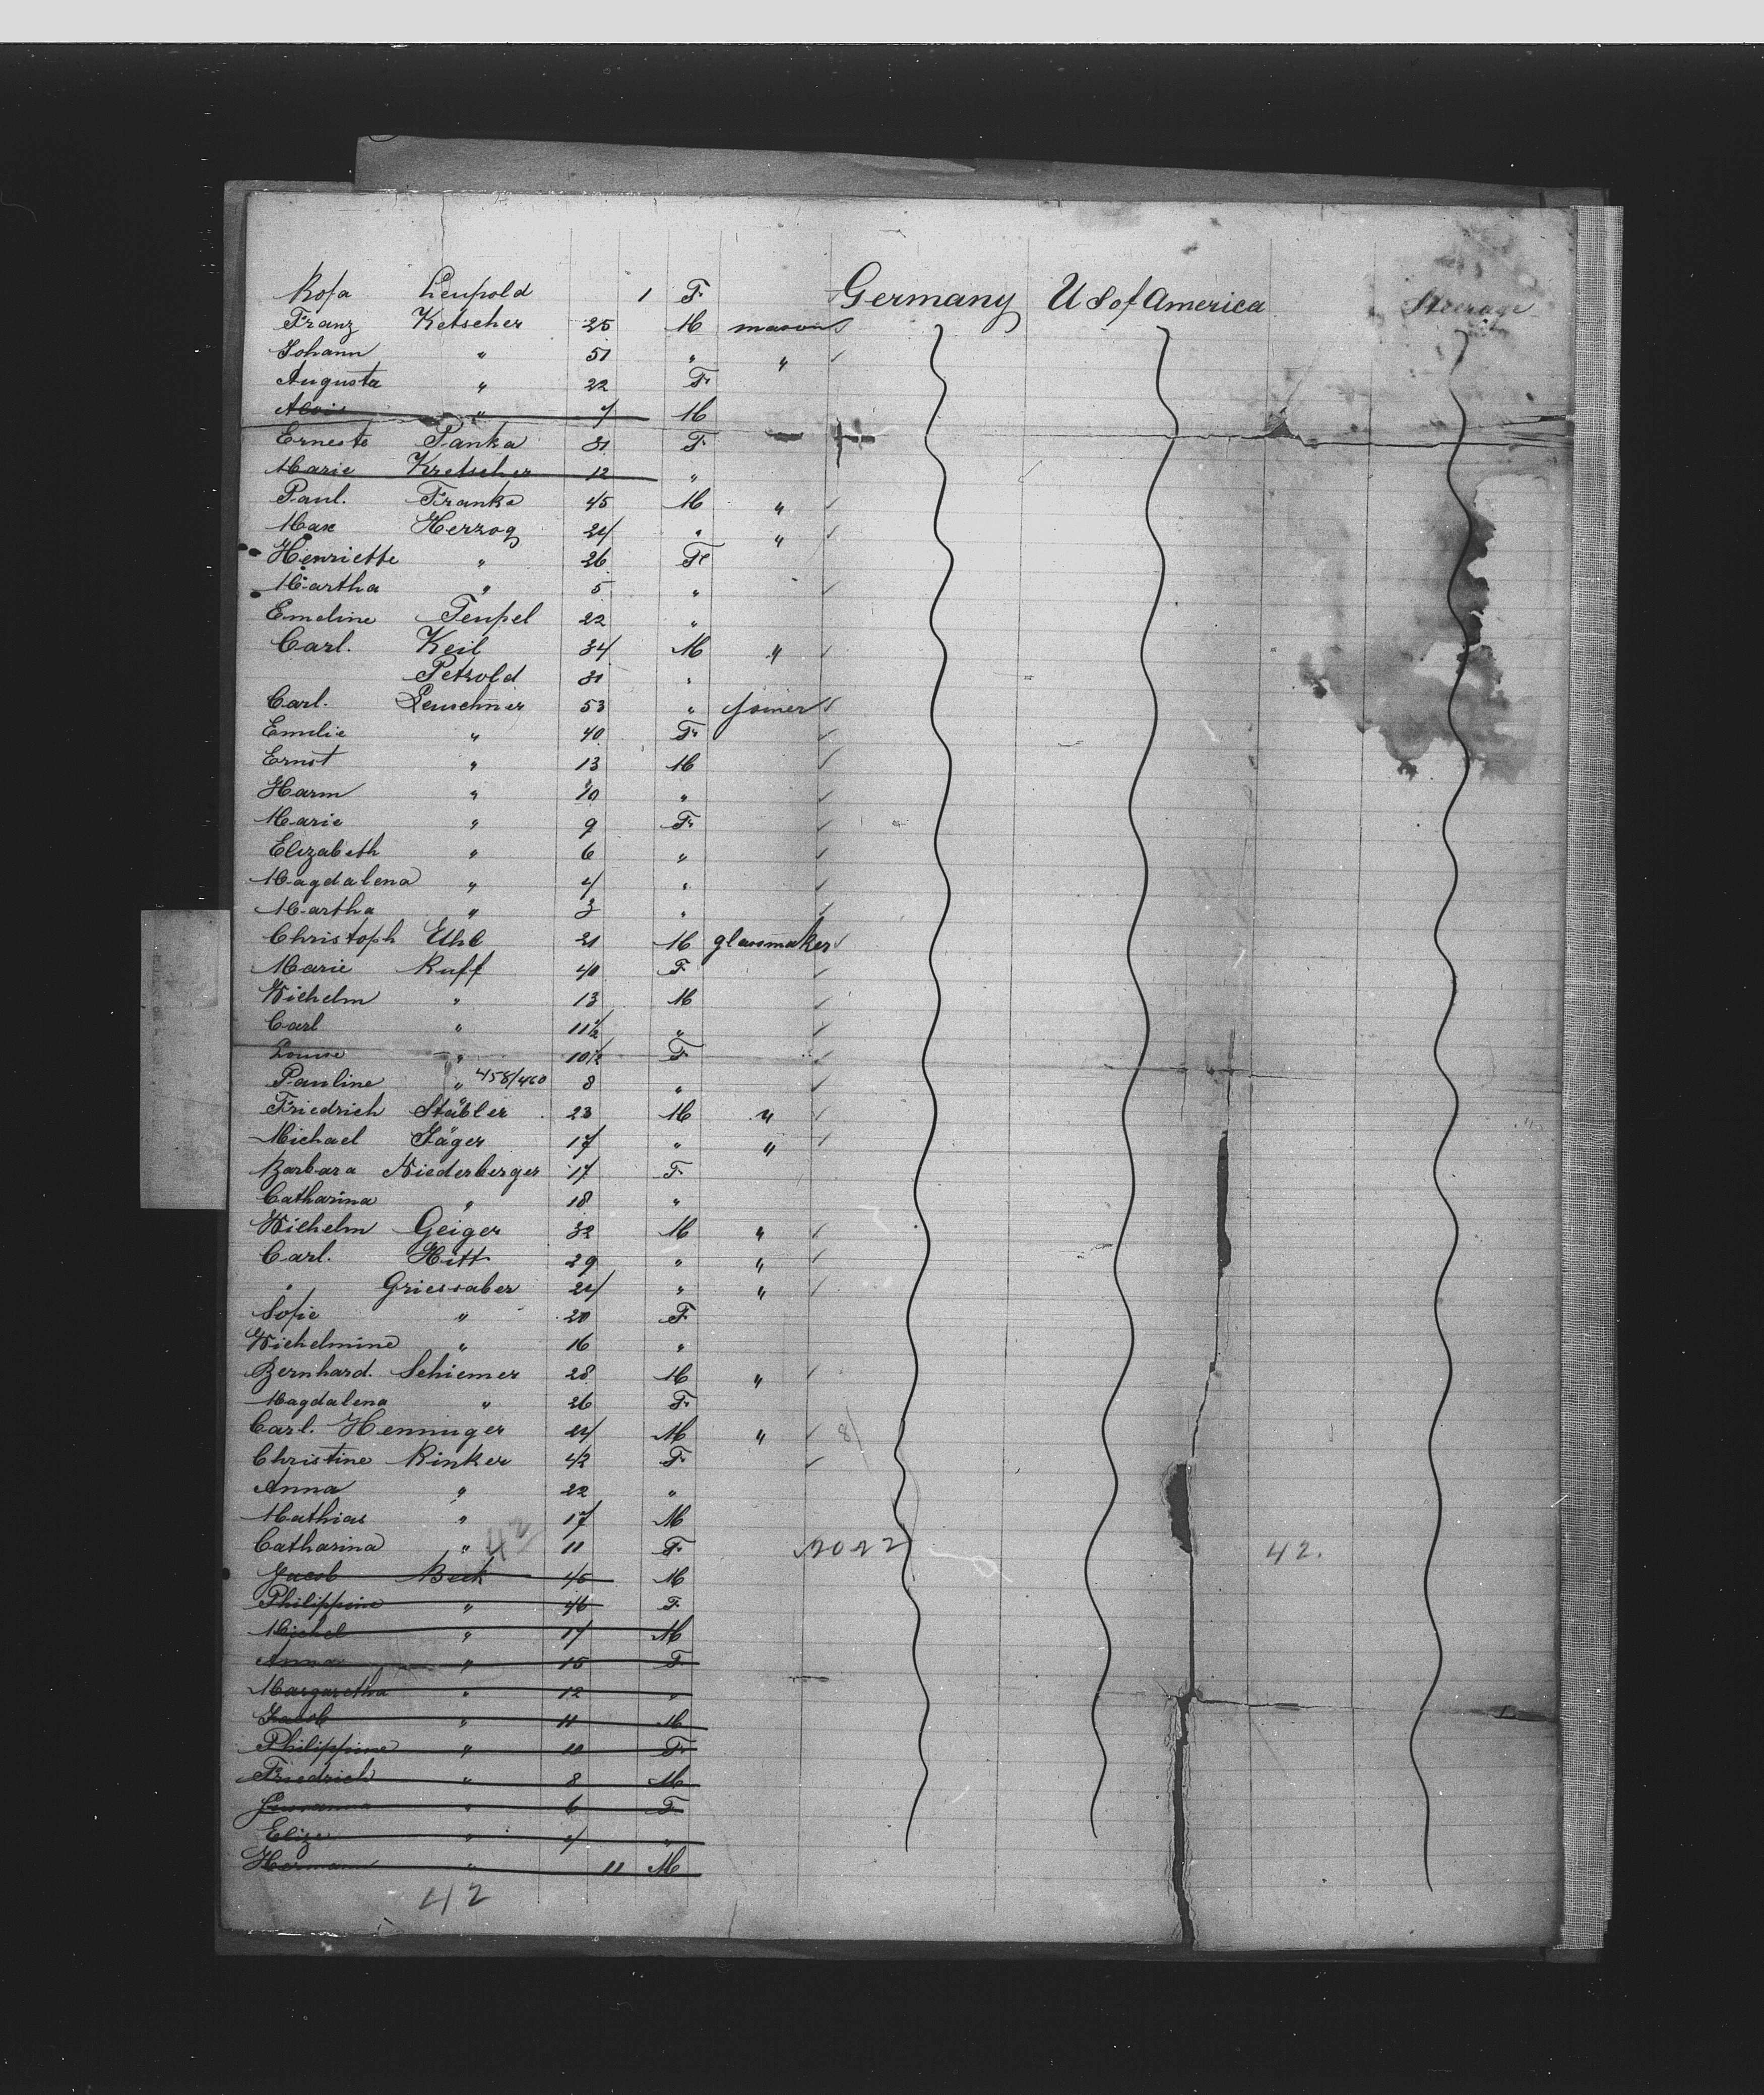 Rosa Leupold 1 F. Germany U S of America Steerage
Franz Ketscher 25 M mason
Johann " 51 " "
Augusta " 22 F
Alois " 4 M
Erneste Panka 31 F
Marie Kretscher 12 "
Paul. Franke 45 M "
Max Herzog 24 " "
Henriette " 26 F
Martha " 5 "
Emeline Teupel 22 "
Carl. Keil 34 M "
Petzold 31 "
Carl. Leuschner 53 " joiner
Emilie " 40 F
Ernst " 13 M
Harm " 10 "
Marie " 9 F
Elizabeth " 6 "
Magdalena " 4 "
Martha " 3 "
Christoph Uhl 21 M glassmaker
Marie Ruff 40 F
Wilhelm " 13 M
Carl " 11½ "
Louise " 10½ F
Pauline " 458/460 8 "
Friedrich Stäbler 23 M "
Michael Jäger 17 " "
Barbara Niederberger 17 F
Catharina " 18 "
Wilhelm Geiger 32 M "
Carl. Hitt 29 " "
" Griessaber 24 " "
Sofie " 20 F
Wilhelmine " 16 "
Bernhard. Schiemer 28 M "
Magdalena " 26 F
Carl. Henninger 24 M " 8/
Christine Rinker 42 F
Anna " 22 "
Mathias " 17 M
Catharina " 42 11 F 2022 42.
Jacob Beck 45 M
Philippine " 46 F
Michel " 17 M
Anna " 15 F
Margaretha " 12 "
Jacob " 11 M
Philippine " 10 F
Friedrich " 8 M
" 6 F
Elize " 4 "
Hermann " 11 M
42